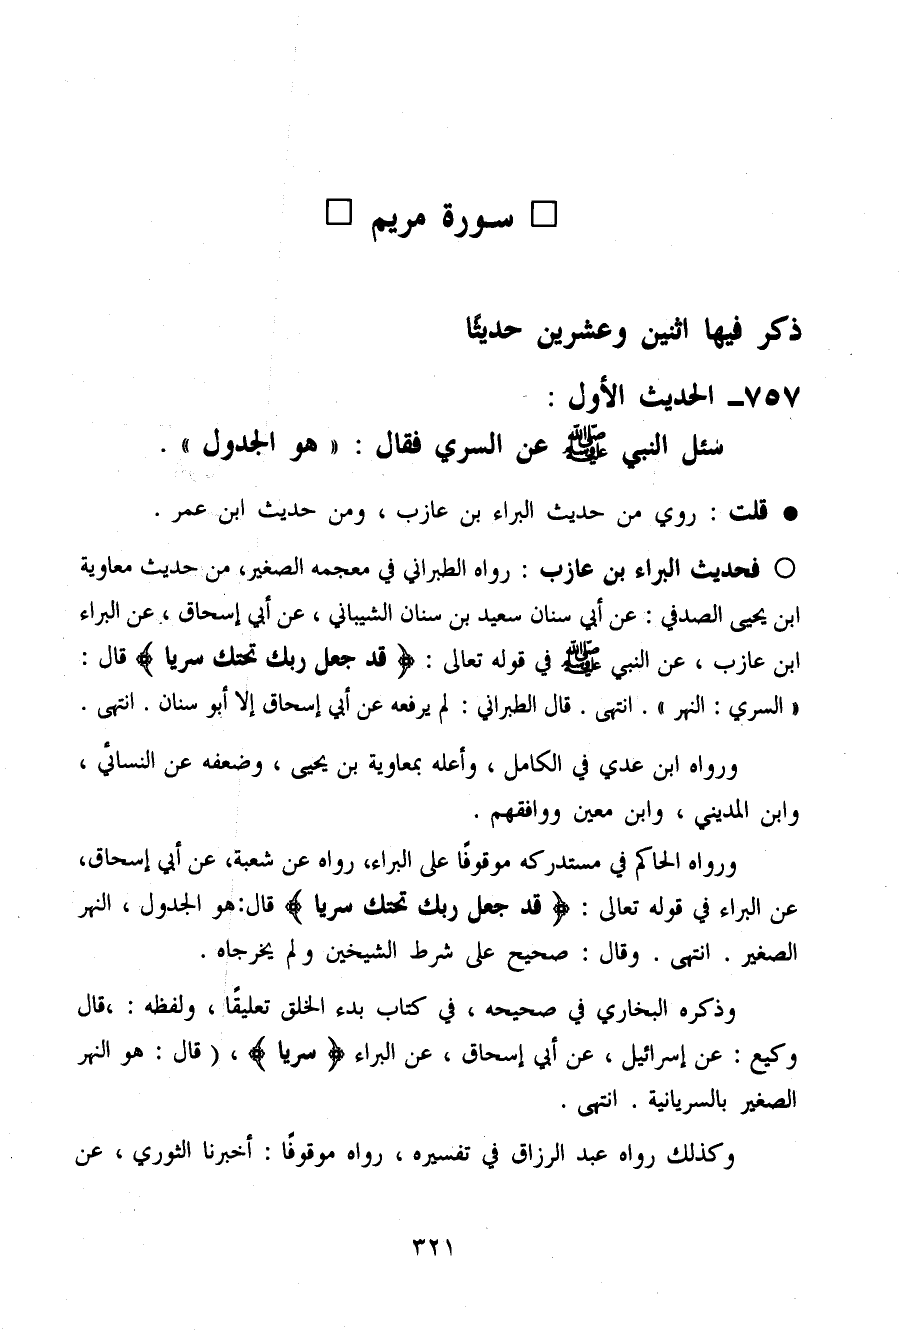 □ سورة مريم □
ذكر فيها اثنين وعشرين حديثًا
٧٥٧ـ الحديث الأول :
سُئل النبي ﷺ عن السري فقال : « هو الجدول » .
● قلت : روي من حديث البراء بن عازب ، ومن حديث ابن عمر .
○ فحديث البراء بن عازب : رواه الطبراني في معجمه الصغير، من حديث معاوية
ابن يحيى الصدفي : عن أبي سنان سعيد بن سنان الشيباني ، عن أبي إسحاق ، عن البراء
ابن عازب ، عن النبي ﷺ في قوله تعالى : ﴿ قد جعل ربك تحتك سريا ﴾ قال :
« السري : النهر » . انتهى . قال الطبراني : لم يرفعه عن أبي إسحاق إلا أبو سنان . انتهى .
ورواه ابن عدي في الكامل ، وأعله بمعاوية بن يحيى ، وضعفه عن النسائي ،
وابن المديني ، وابن معين ووافقهم .
ورواه الحاكم في مستدركه موقوفًا على البراء، رواه عن شعبة، عن أبي إسحاق،
عن البراء في قوله تعالى : ﴿ قد جعل ربك تحتك سريا ﴾ قال:هو الجدول ، النهر
الصغير . انتهى . وقال : صحيح على شرط الشيخين ولم يخرجاه .
وذكره البخاري في صحيحه ، في كتاب بدء الخلق تعليقًا ، ولفظه : ،قال
وكيع : عن إسرائيل ، عن أبي إسحاق ، عن البراء ﴿ سريا ﴾ ، ( قال : هو النهر
الصغير بالسريانية . انتهى .
وكذلك رواه عبد الرزاق في تفسيره ، رواه موقوفًا : أخبرنا الثوري ، عن
٣٢١